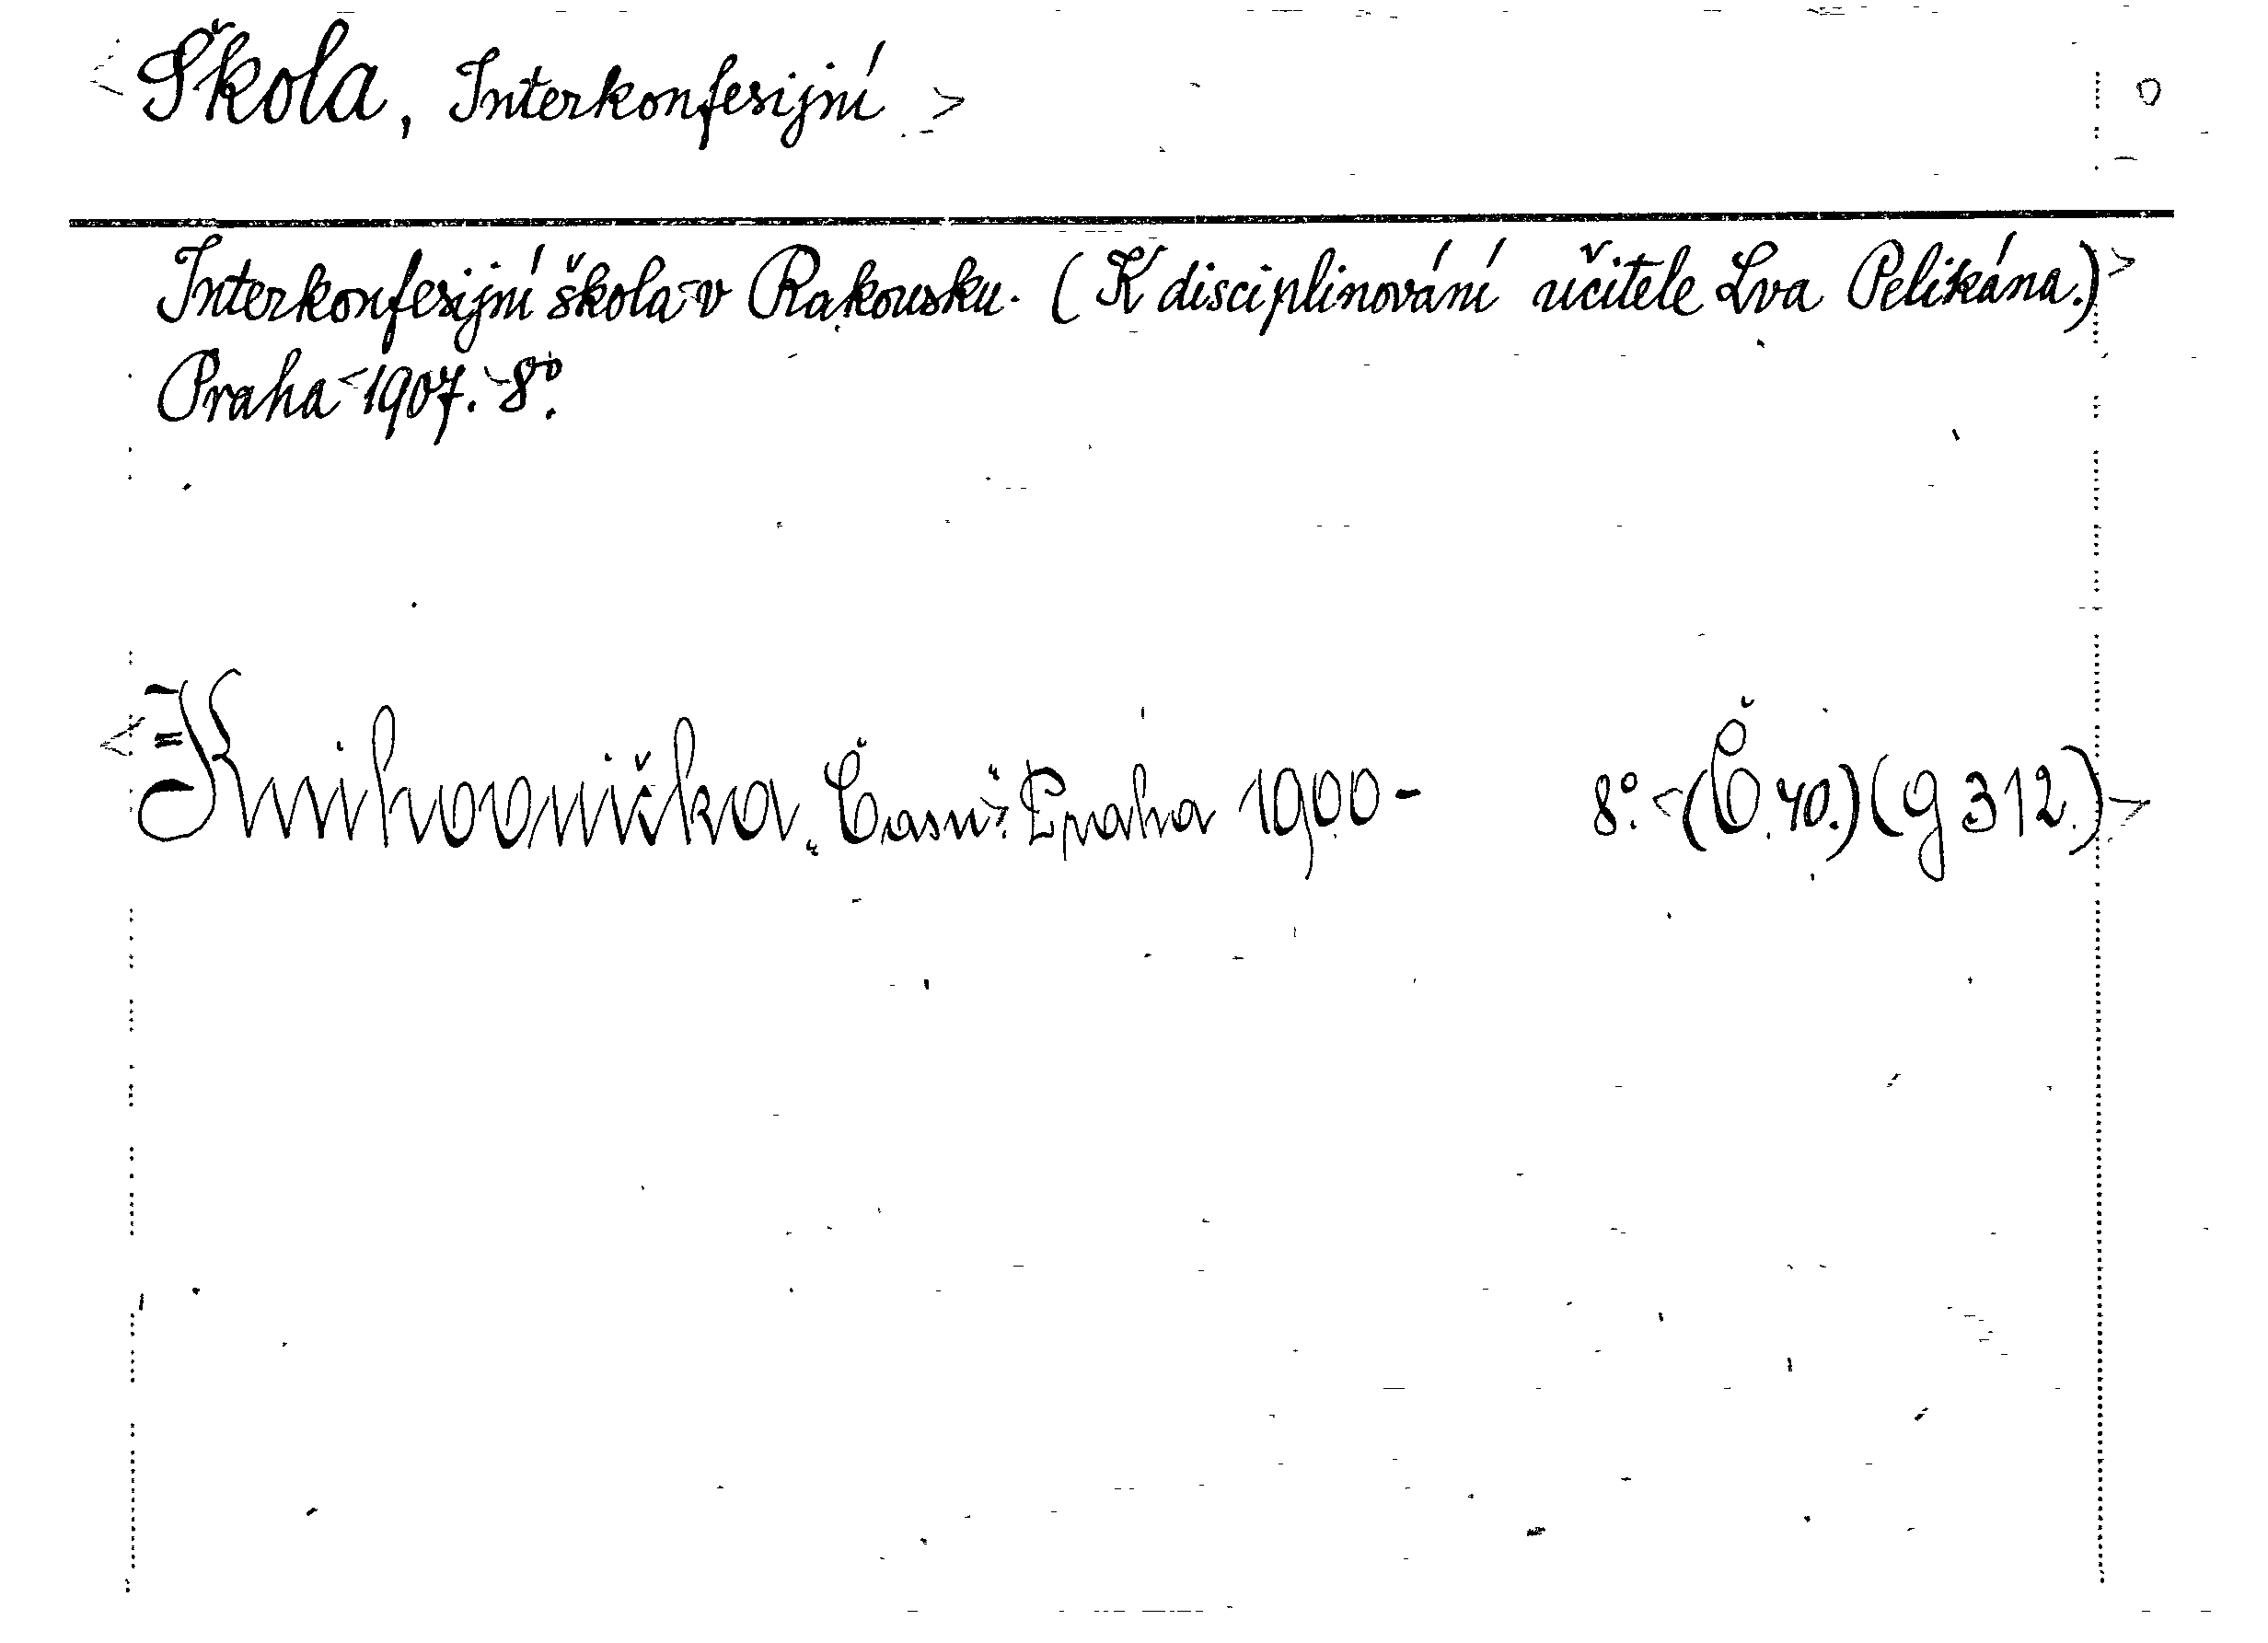 <Škola, Interkonfesijní>
Interkonfesijní škola v Rakousku. (K disciplinování učitele Lva Pelikána.)>
Praha <1907. >8°.
<= Knihovnička „Času“. Praha 1900 - 8°. <(Č. 40.) (g 312.)>